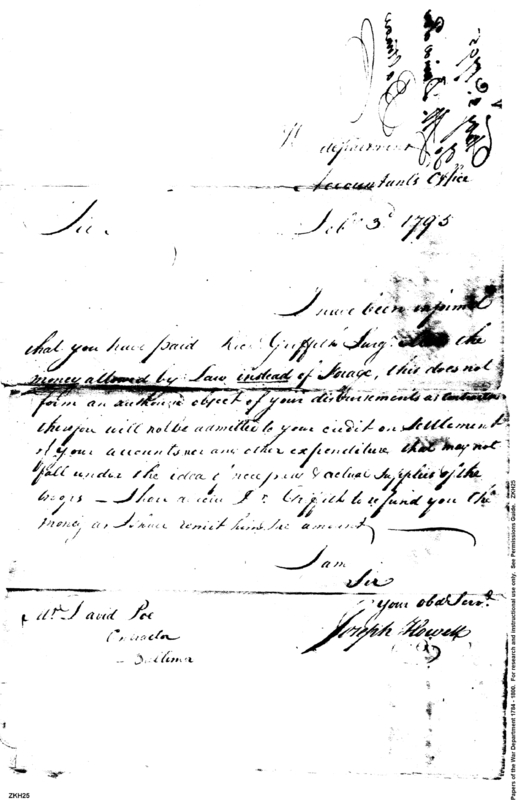 department
Accountants Office
Sir
Feby 3d 1795
I have been informed
that you have paid Griffith Surg the
money allowed by Law instead of forage, this does not
form an authorize object of your disbursements as contractor
they will not be admitted to your credit on Settlement
of your accounts nor any other expenditure that may not
fall under the idea of necessary & actual Supplies of the
troops — Griffith to refund you the
money as I have remit him the amount
I am
Sir
your obdt Servt
Joseph Howell
Mr David Poe
Contractor
Baltimore
Papers of the War Department 1784 - 1800. For research and instructional use only. See Permissions Guide. ZKH25
ZKH25